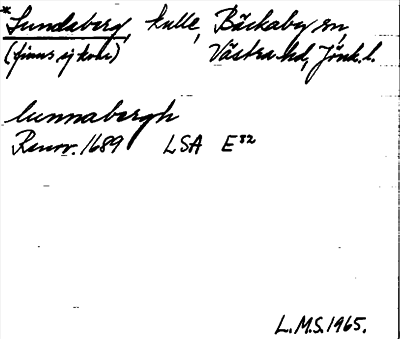 *Lundaberg, kulle, Bäckaby sn,
(finns ej kvar) Västra hd, Jönk. l.
lunnabergh
Renov. 1689 LSA E⁸²
L.M.S. 1965.